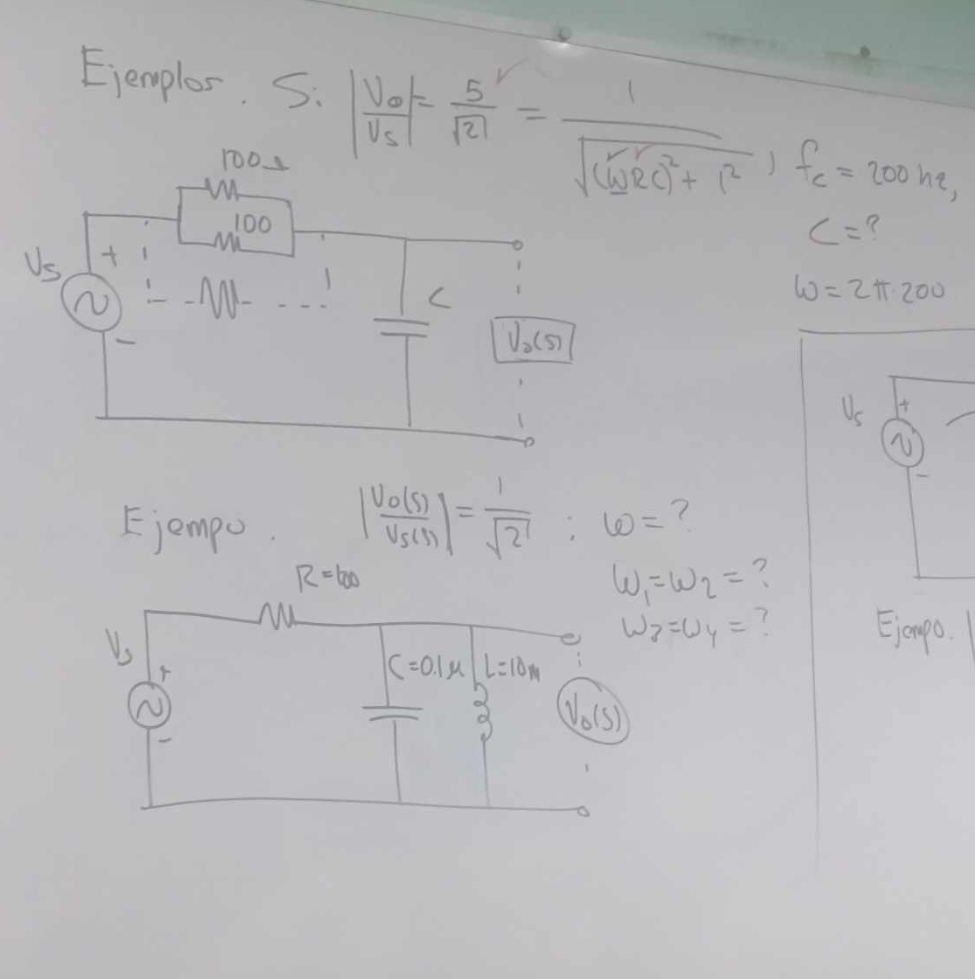 Ejemplos. Si |Vo/Vs| = 5/√2 = 1/√((WRC)²+1²), fc = 200 hz,
C = ?
W = 2π·200
100Ω
100
Vs
+
-
C
Vo(s)
Ejempo. |Vo(s)/Vs(s)| = 1/√2 ; W = ?
W1=W2=?
R=100
Vs
+
-
C=0.1μ
L=10m
Vo(s)
Vs
+
-
Ejempo.